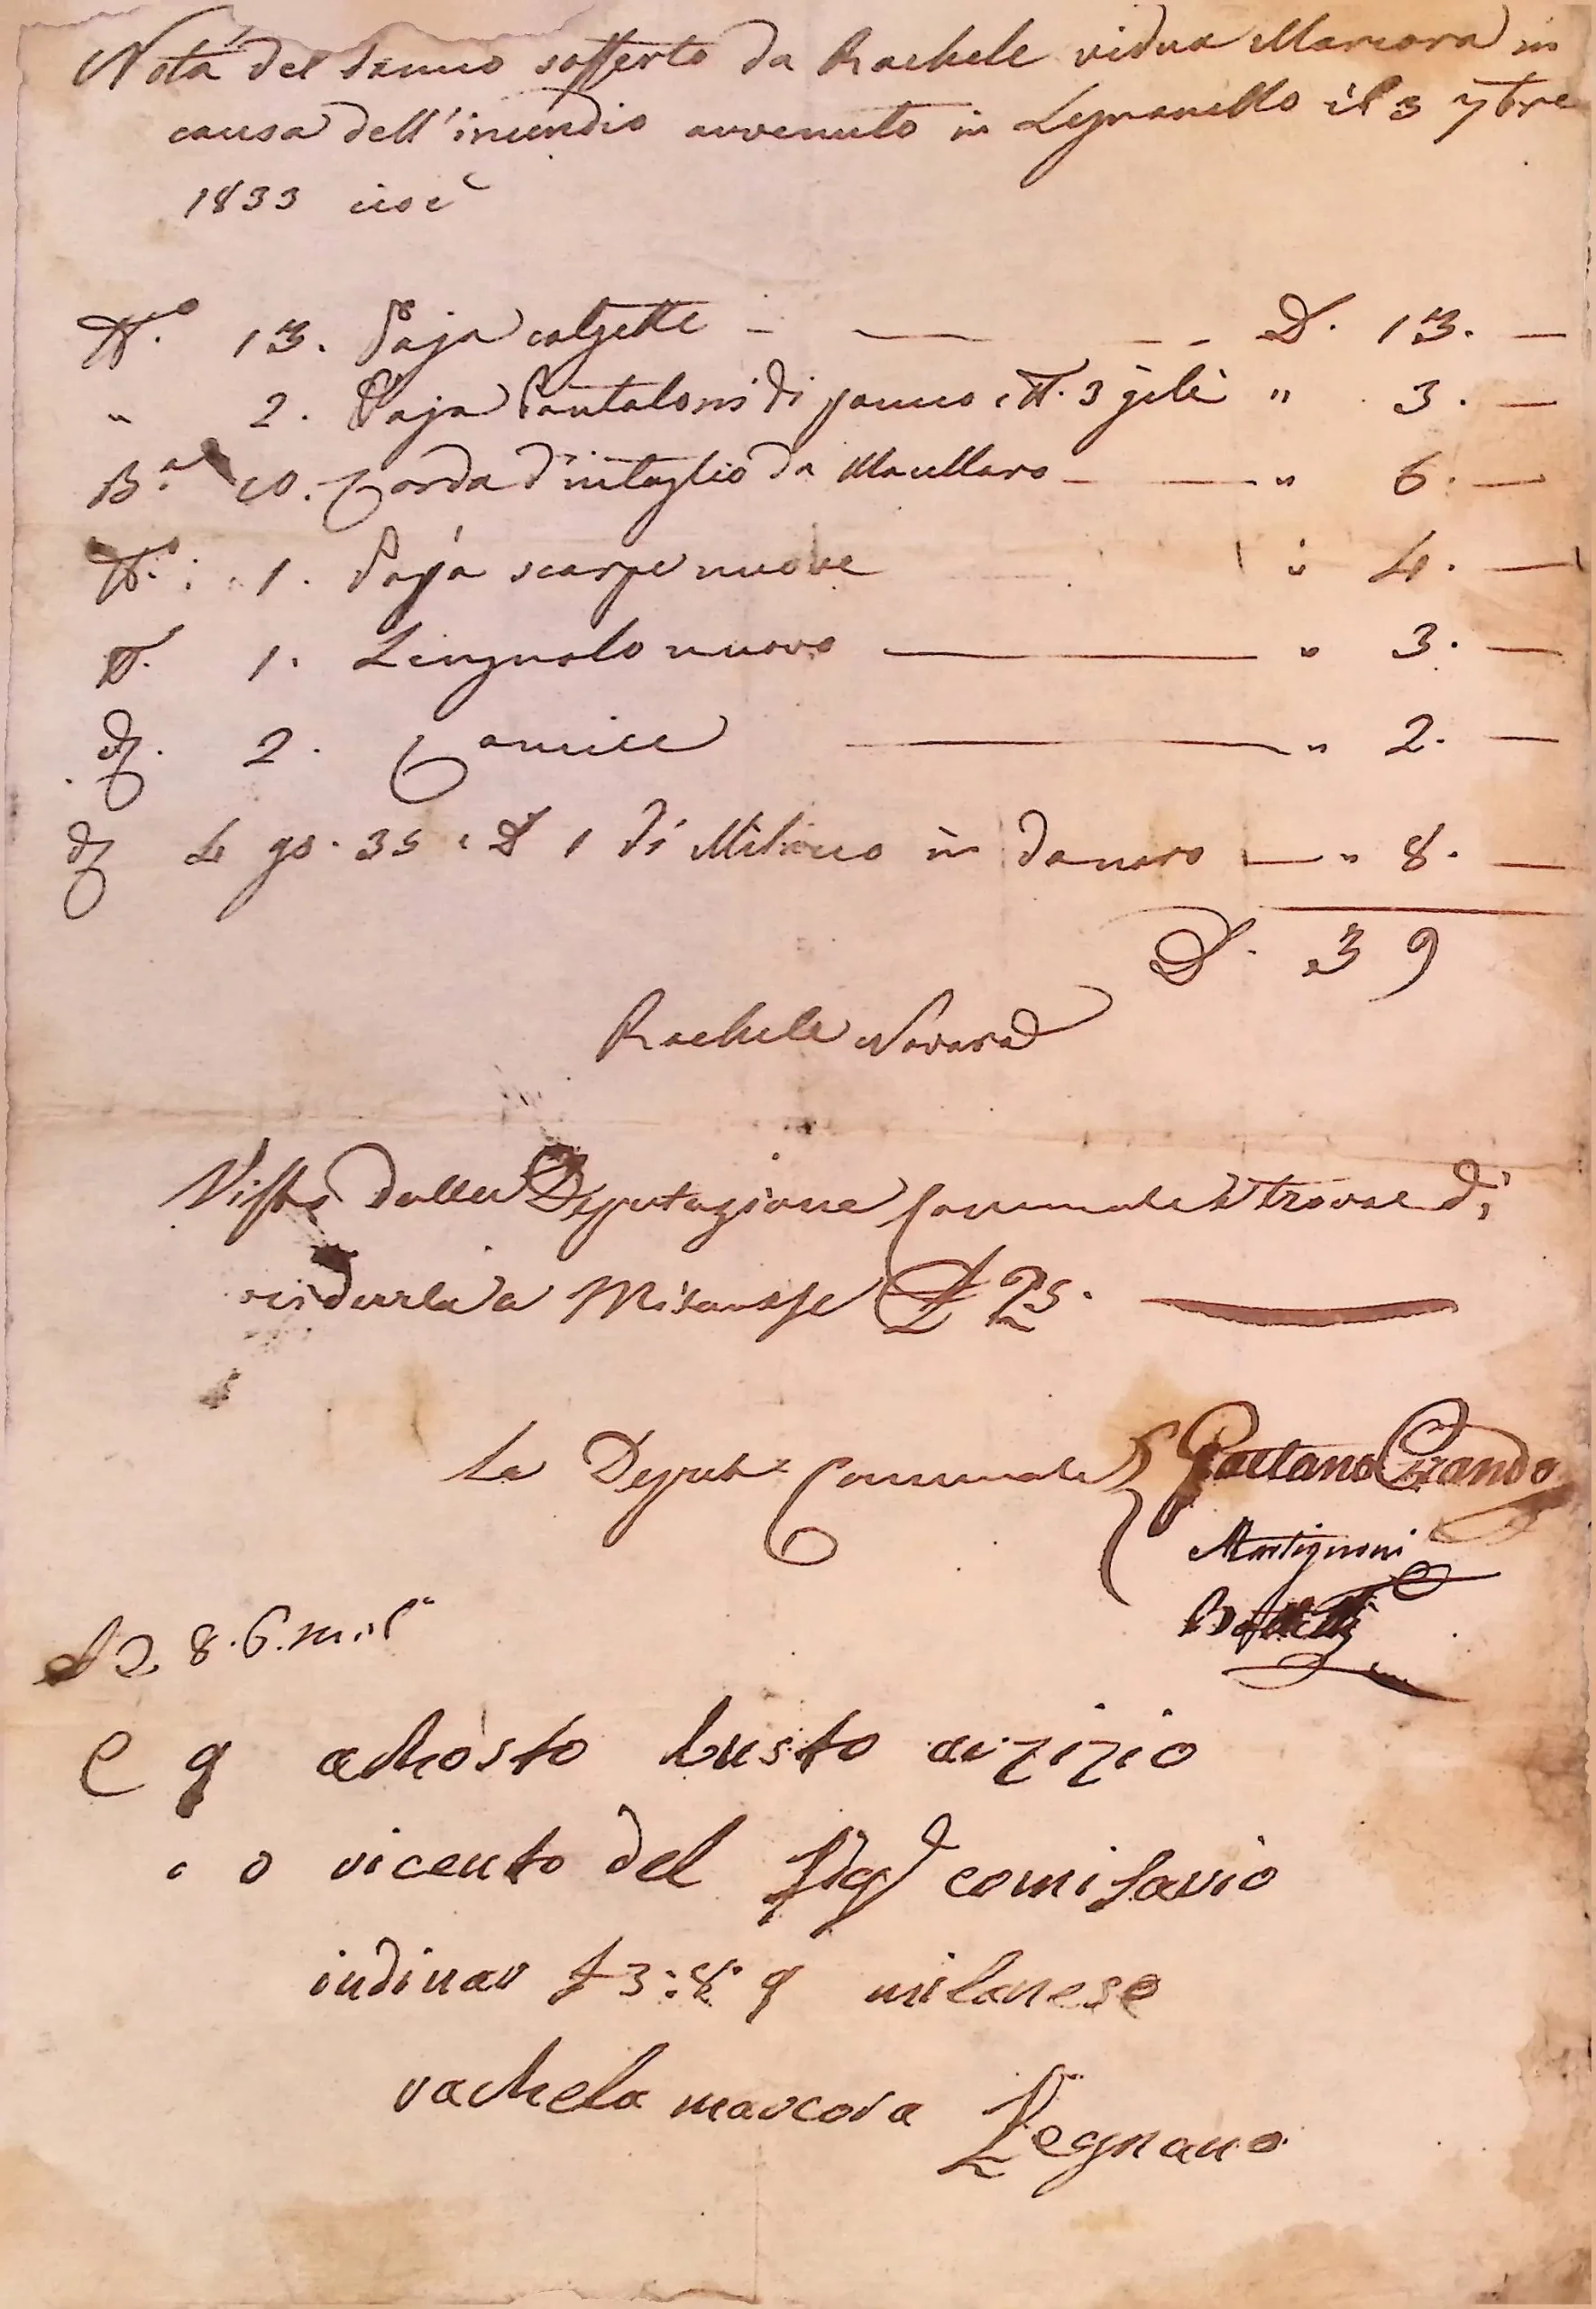 Nota del danno sofferto da Rachele vidua Marcora in
causa dell'incendio avvenuto in Legnanello il 3 7bre
1833 cioè
N.° 13. Paja calzette - — D. 13. —
" 2. Paja Pantaloni di panno, N. 3 gilè " 3. —
B.a 10. Corda d'intaglio da Macellaro — " 6. —
N.° 1. Paja scarpe nuove " 4. —
N. 1. Lenzuolo nuovo — " 3. —
2. Camice — " 2. —
4 35 1 di Milano in danaro — " 8. —
D. 39
Rachele Novara
Vista dalla Deputazione Comunale trovasi di
ridurla a Milanesi £ 25. —
La Deput.e Comunale Gaetano Prandoni
Martignoni
£ 2. 8. 6. mil
E 9 adhosto busto arzizio
o ricevto del Sig comisario
indinar £ 3:8: 9 milanese
rachela marcora Legnano